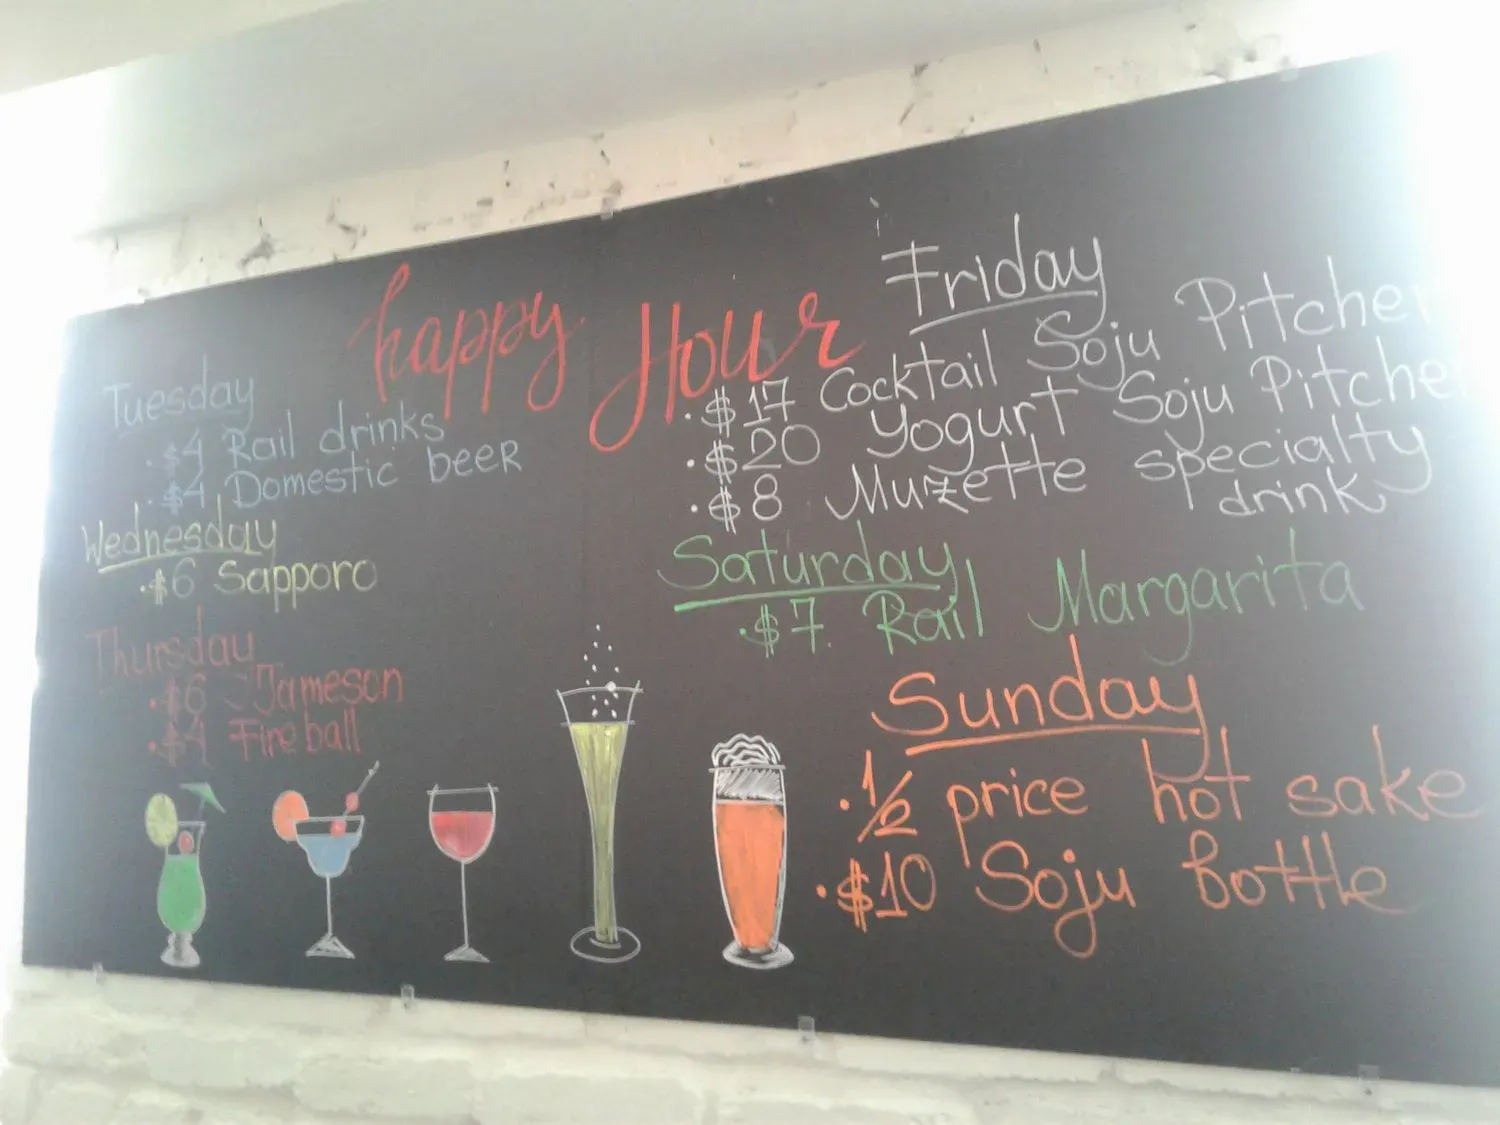 happy Hour
Tuesday
· $4 Rail drinks
· $4 Domestic beer
Wednesday
· $6 Sapporo
Thursday
· $6 Jameson
· $4 Fireball
Friday
· $17 Cocktail Soju Pitcher
· $20 Yogurt Soju Pitcher
· $8 Muzette specialty
drink
Saturday
· $7 Rail Margarita
Sunday
· 1/2 price hot sake
· $10 Soju Bottle